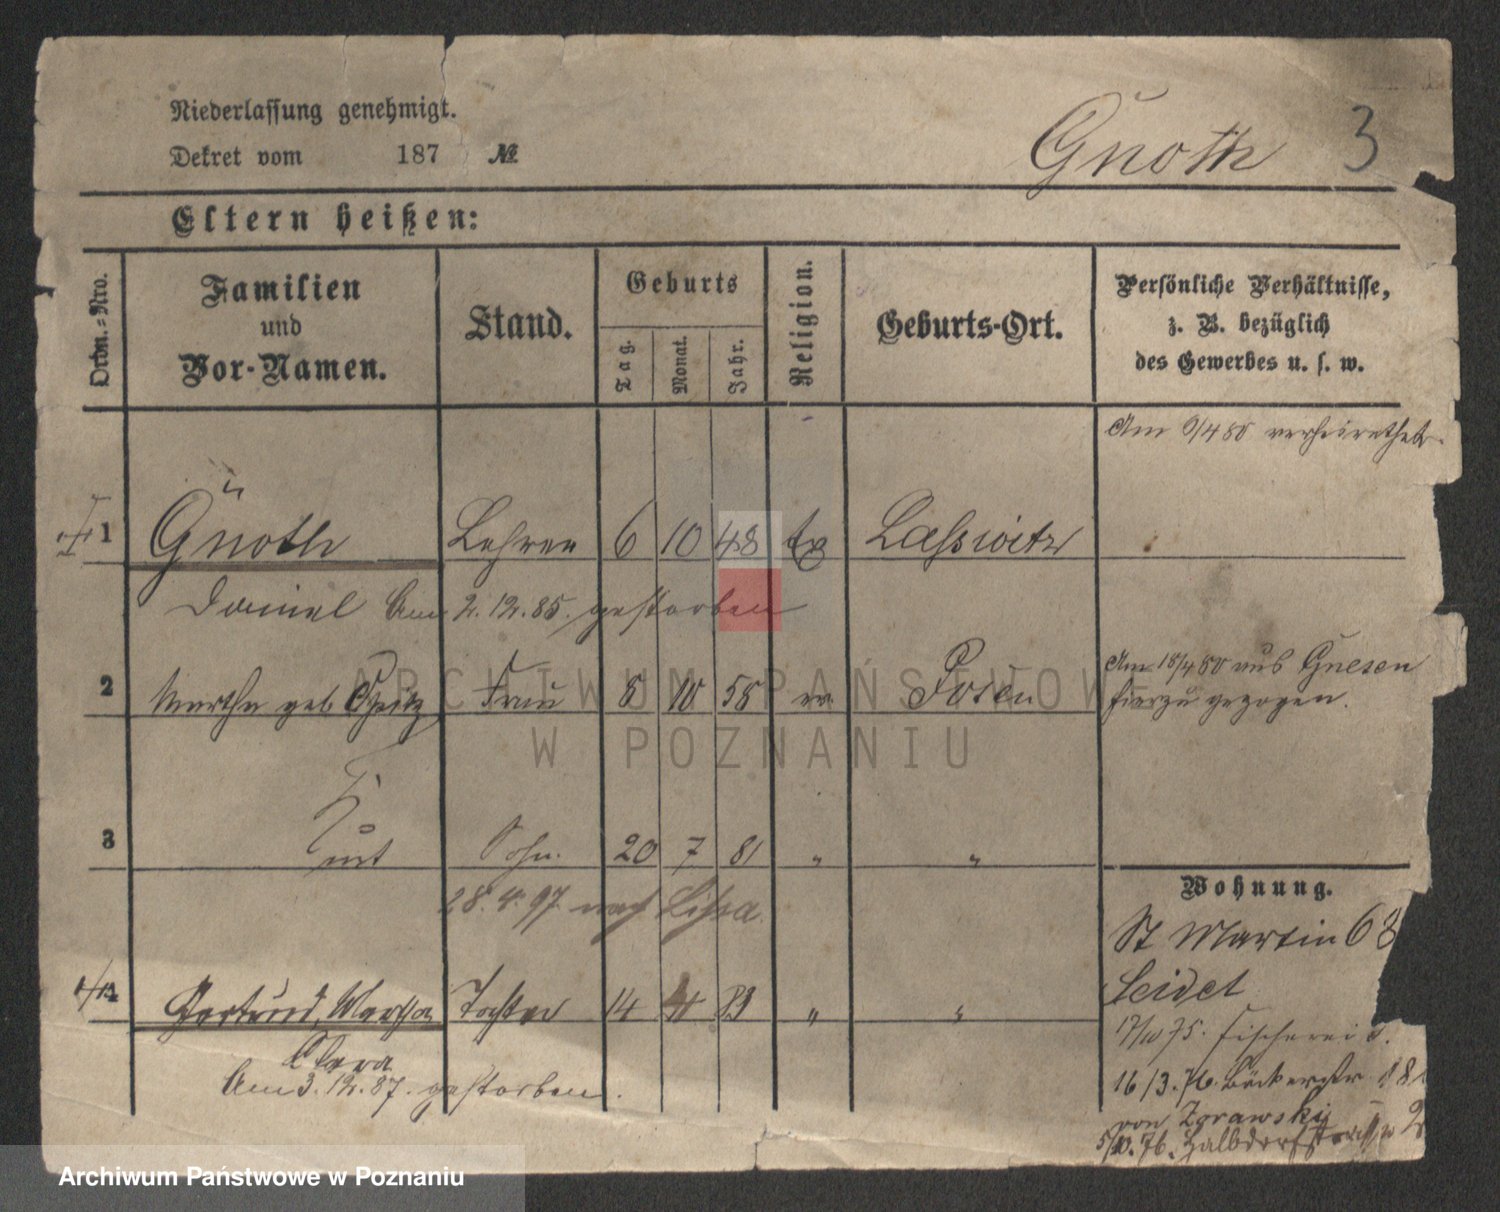 Niederlassung genehmigt.
Dekret vom 187 №
Gnoth 3
Eltern heißen:
Ordn.-Nro.
Familien und Vor-Namen.
Stand.
Geburts
Tag. Monat. Jahr.
Religion.
Geburts-Ort.
Persönliche Verhältnisse, z. B. bezüglich des Gewerbes u. s. w.
Am 9/4 80 verheirathet.
1 Gnoth Lehrer 6 10 48 ev Lasswitz
Daniel Am 2.12.85. gestorben
2 Martha geb. Opitz Frau 8 10 58 ev. Posen
Am 18/4 80 aus Gnesen
hierzu gezogen.
3 Kurt Sohn. 20 7 81 " "
28.4.97. nach Lissa.
4 Gertrud, Martha Tochter 14 4 83 " "
Clara
Am 3.12.87. gestorben.
Wohnung.
St Martin 68
Seidel
17/10 75. Fischerei
16/3.76. Bäckerstr.
von Zorawsky
5/10.76. Halbdorfstrasse 2
ARCHIWUM PAŃSTWOWE
W POZNANIU
Archiwum Państwowe w Poznaniu